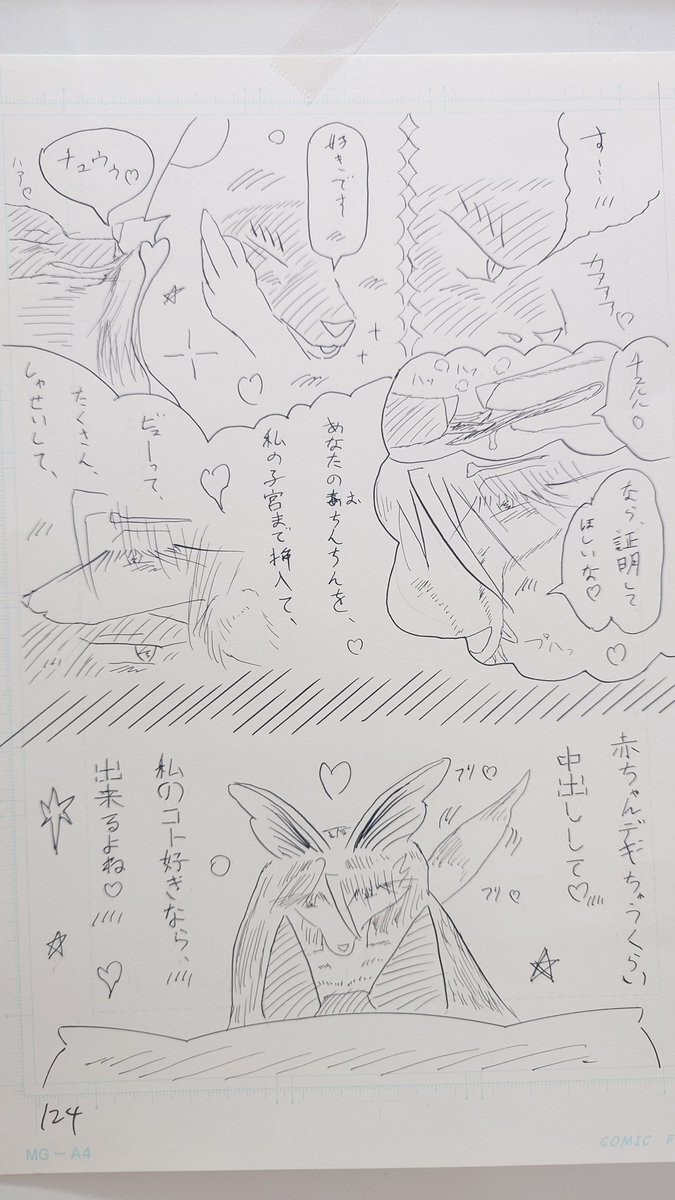 すー…
カァァァ♡
好きです
チュウゥ♡
ハァ♡
チュルル
ハッ
ハッ
なら、証明して
ほしいな♡
プハっ
あなたのおちんちんを、
私の子宮まで挿入て、
ビューって、
たくさん、
しゃせいして、
赤ちゃんデキちゃうくらい
中出しして♡
フリ♡
フリ♡
私のコト好きなら…
出来るよね♡
124
MG-A4
COMIC